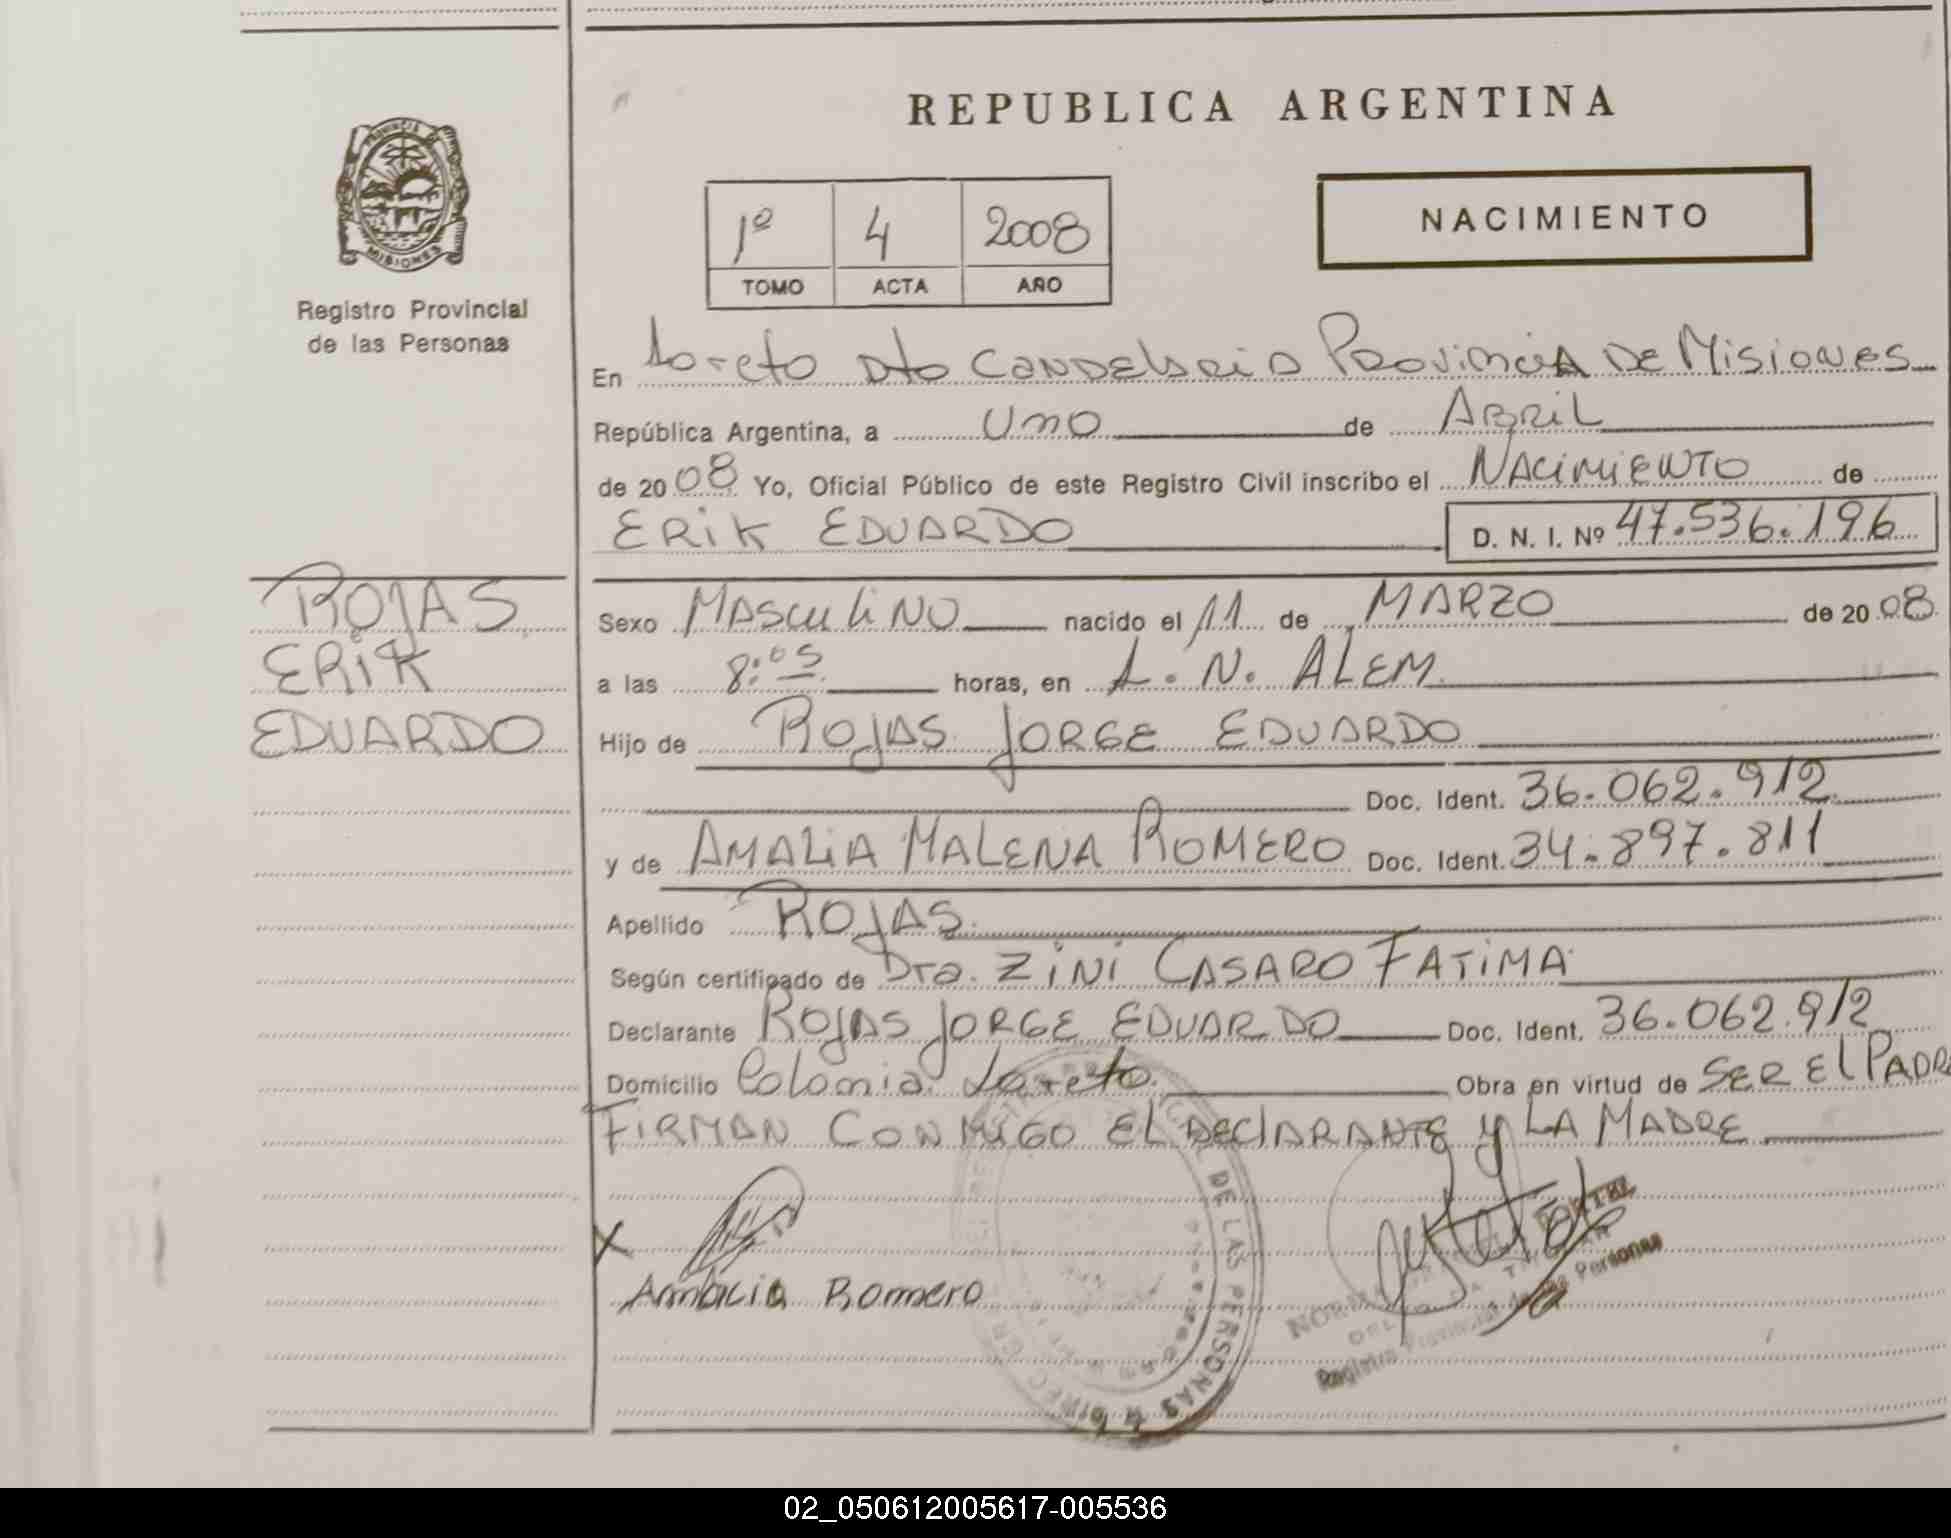 REPUBLICA ARGENTINA
PROVINCIA DE
MISIONES
Registro Provincial
de las Personas
1º 4 2008
TOMO ACTA AÑO
NACIMIENTO
En Loreto Dto CANDELARIA PROVINCIA DE MISIONES
República Argentina, a UNO de ABRIL
de 2008 Yo, Oficial Público de este Registro Civil inscribo el NACIMIENTO de
ERIK EDUARDO D. N. I. Nº 47.536.196
ROJAS
ERIK
EDUARDO
Sexo MASCULINO nacido el 11 de MARZO de 2008
a las 8:05 horas, en L. N. ALEM
Hijo de ROJAS JORGE EDUARDO
Doc. Ident. 36.062.912
y de AMALIA MALENA ROMERO Doc. Ident. 34.897.811
Apellido ROJAS
Según certificado de Dra. ZINI CASARO FATIMA
Declarante ROJAS JORGE EDUARDO Doc. Ident. 36.062.912
Domicilio Colonia Loreto Obra en virtud de SER EL PADRE
FIRMAN CONMIGO EL DECLARANTE Y LA MADRE
X
Romero
DE LAS PERSONAS
Registro Provincial de las Personas
02_050612005617-005536